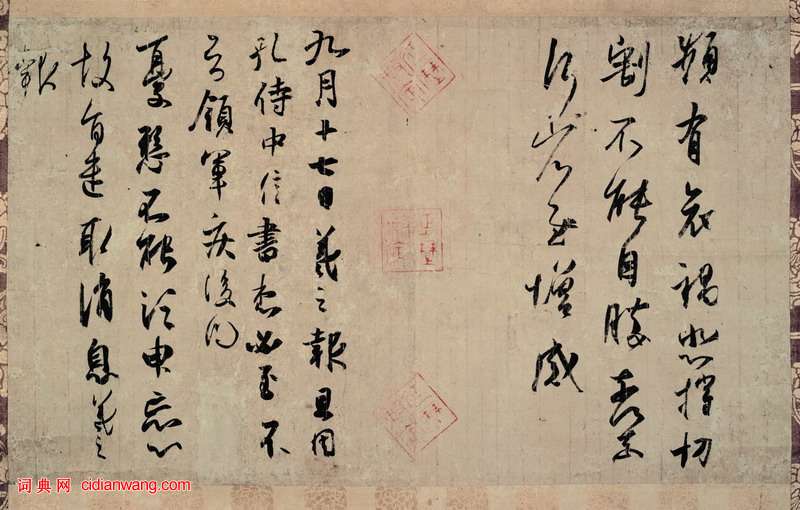 頻有哀禍悲摧切
割不能自勝奈何奈
何省慰增感
九月十七日羲之報且因
孔侍中信書想必至不
知領軍疾後問
憂懸不能須臾忘心
故旨遣取消息羲之
報
词典网 cidianwang.com